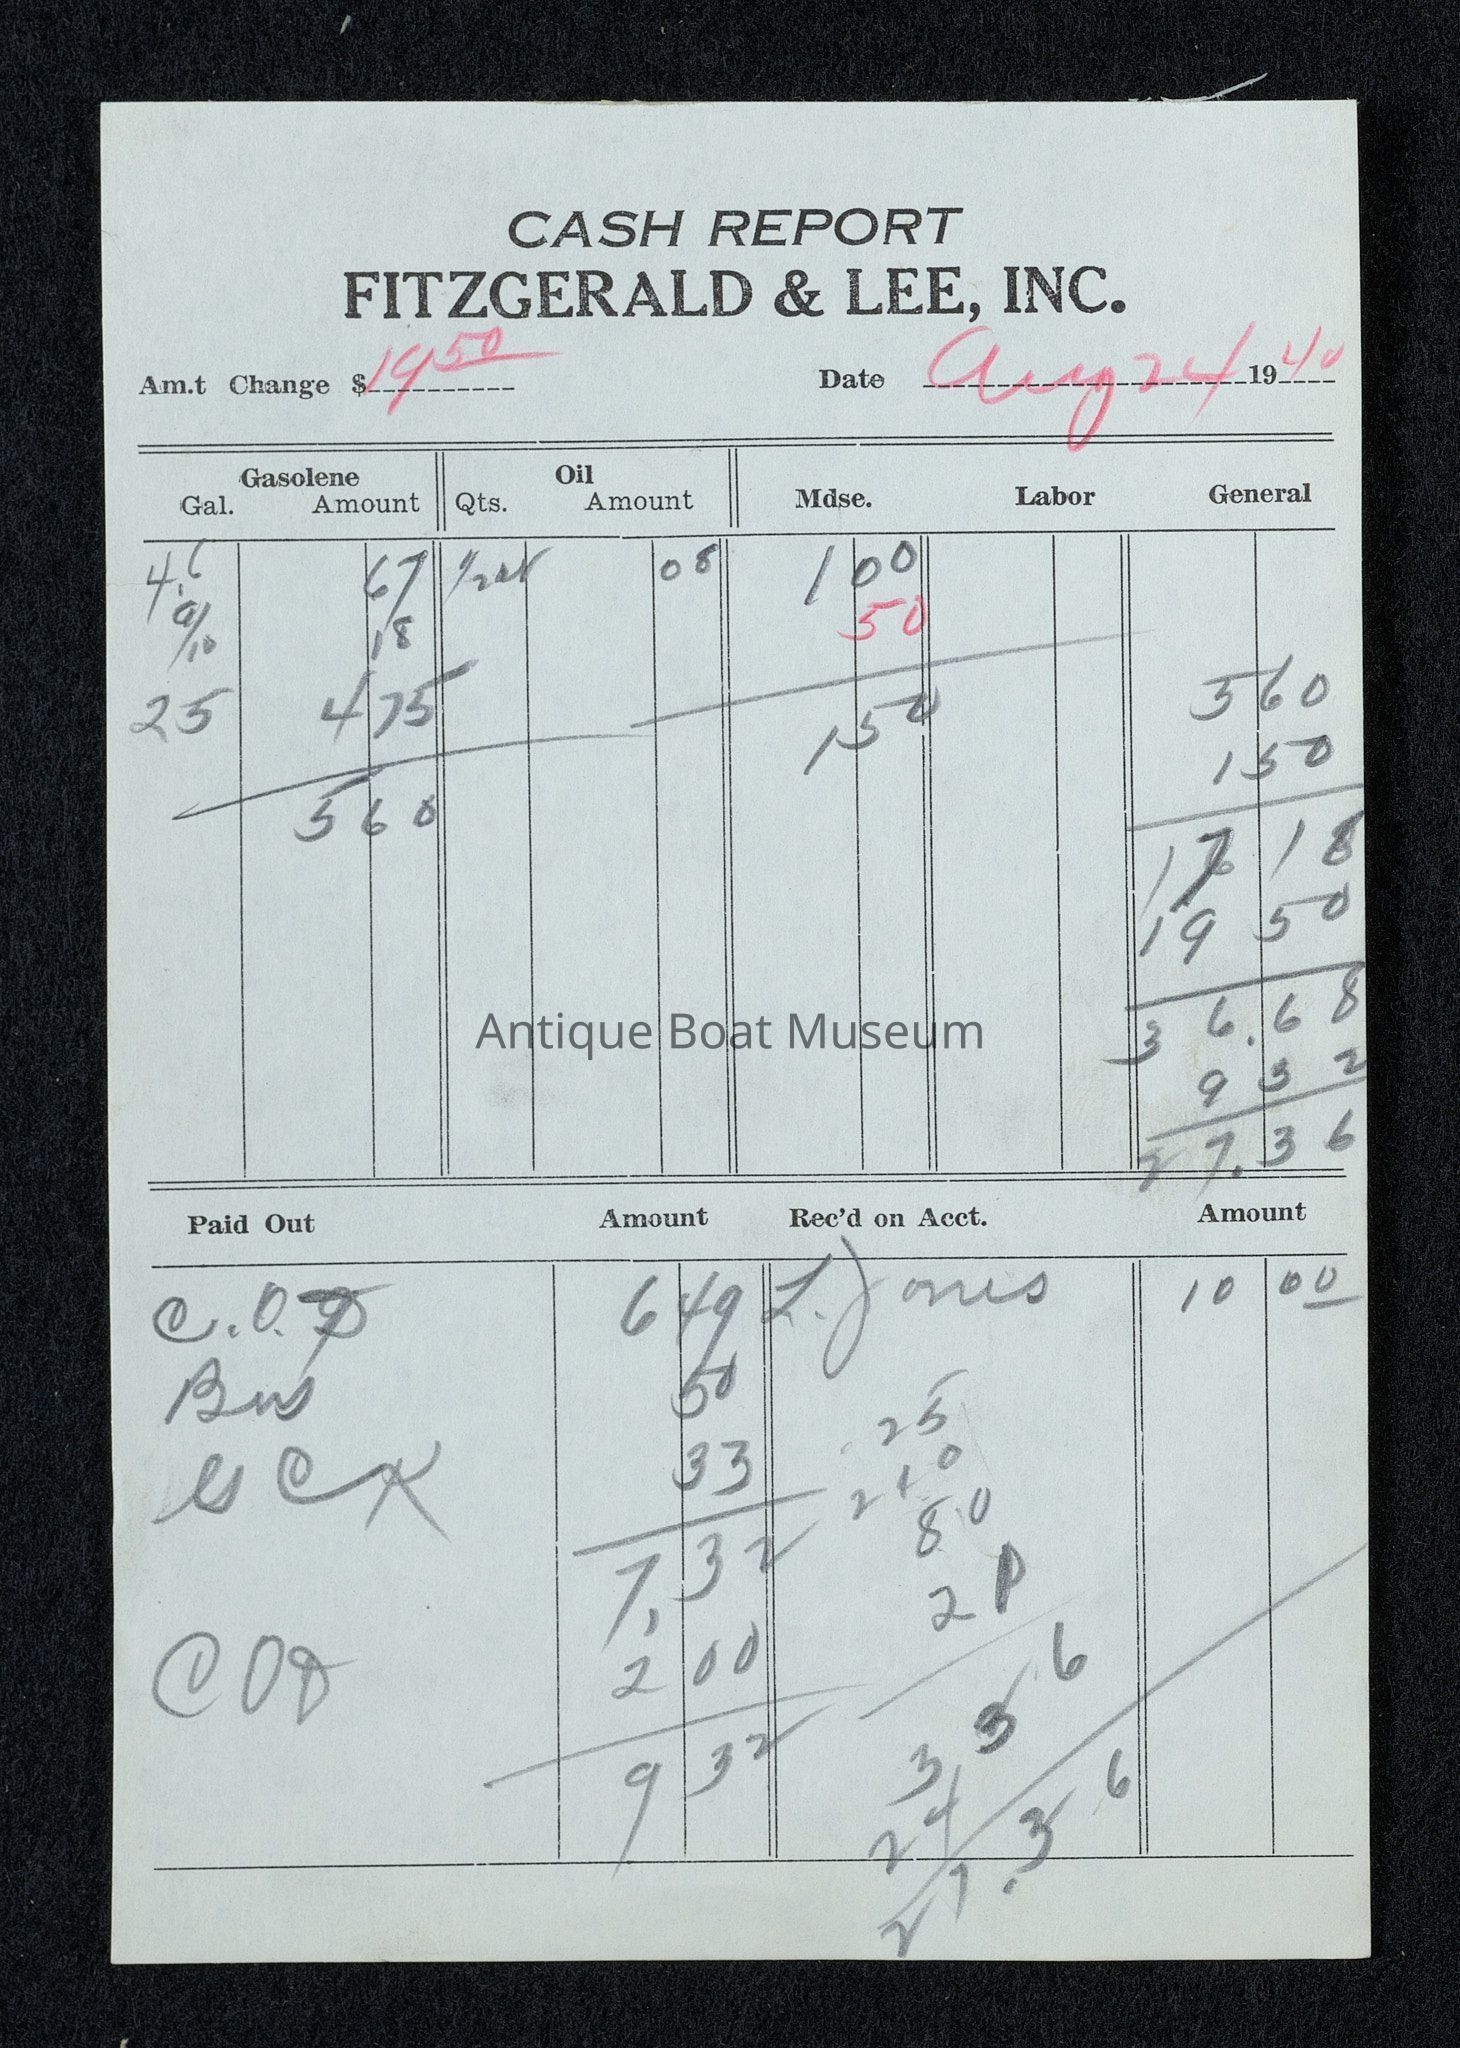 CASH REPORT
FITZGERALD & LEE, INC.
Am.t Change $ 19 50 Date Aug 24 19 40
Gasolene Oil Mdse. Labor General
Gal. Amount Qts. Amount
4.6 67 1/2 qt 08 1 00
9/10 18 50
25 4 75 1 50 5 60
1 50
5 60
17 18
19 50
36.68
9 32
27.36
Antique Boat Museum
Paid Out Amount Rec'd on Acct. Amount
C.O.D 6 49 L. Jones 10 00
Bus 50
33
7,32
COD 2 00
9 32
25
210
80
21
3 36
24
27.36